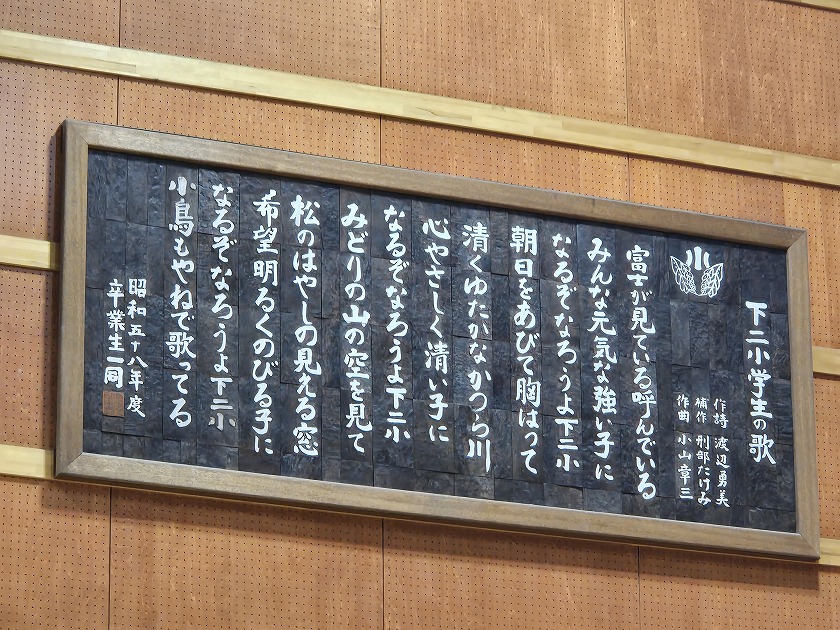 下二小学生の歌
作詩 渡辺勇美
補作 刑部たけみ
作曲 小山章三
小
富士が見ている呼んでいる
みんな元気な強い子に
なるぞなろうよ下二小
朝日をあびて胸はって
清くゆたかなかつら川
心やさしく清い子に
なるぞなろうよ下二小
みどりの山の空を見て
松のはやしの見える窓
希望明るくのびる子に
なるぞなろうよ下二小
小鳥もやねで歌ってる
昭和五十八年度
卒業生一同